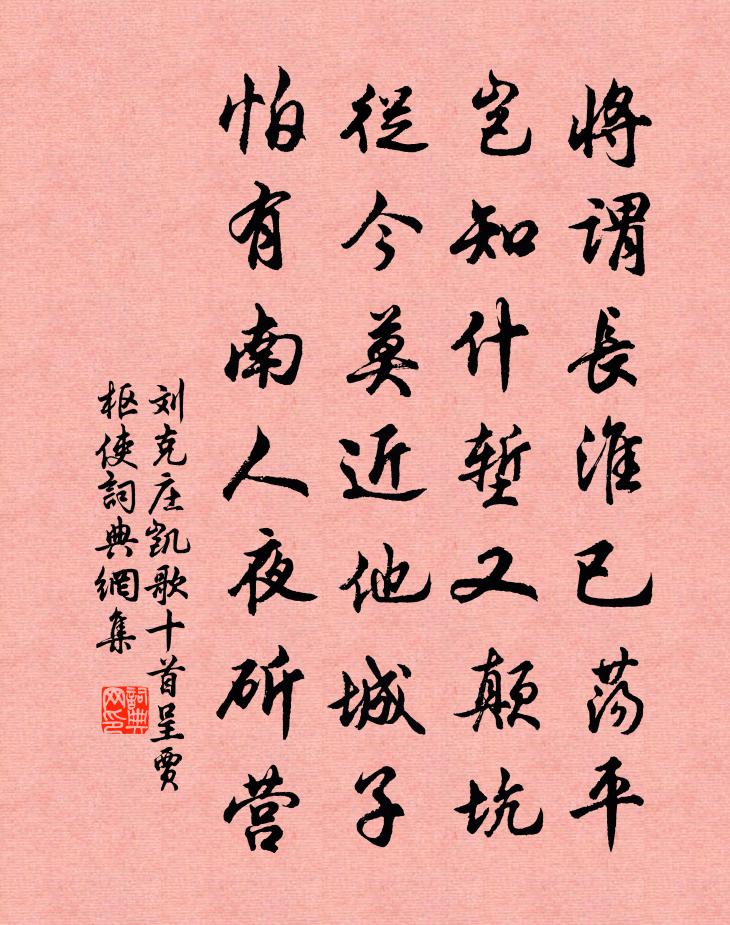 将谓長淮已荡平
岂知什堑又颠坑
從今莫近他城子
怕有南人夜斫营
刘克庄凯歌十首呈贾
枢使詞典網集
詞典網印